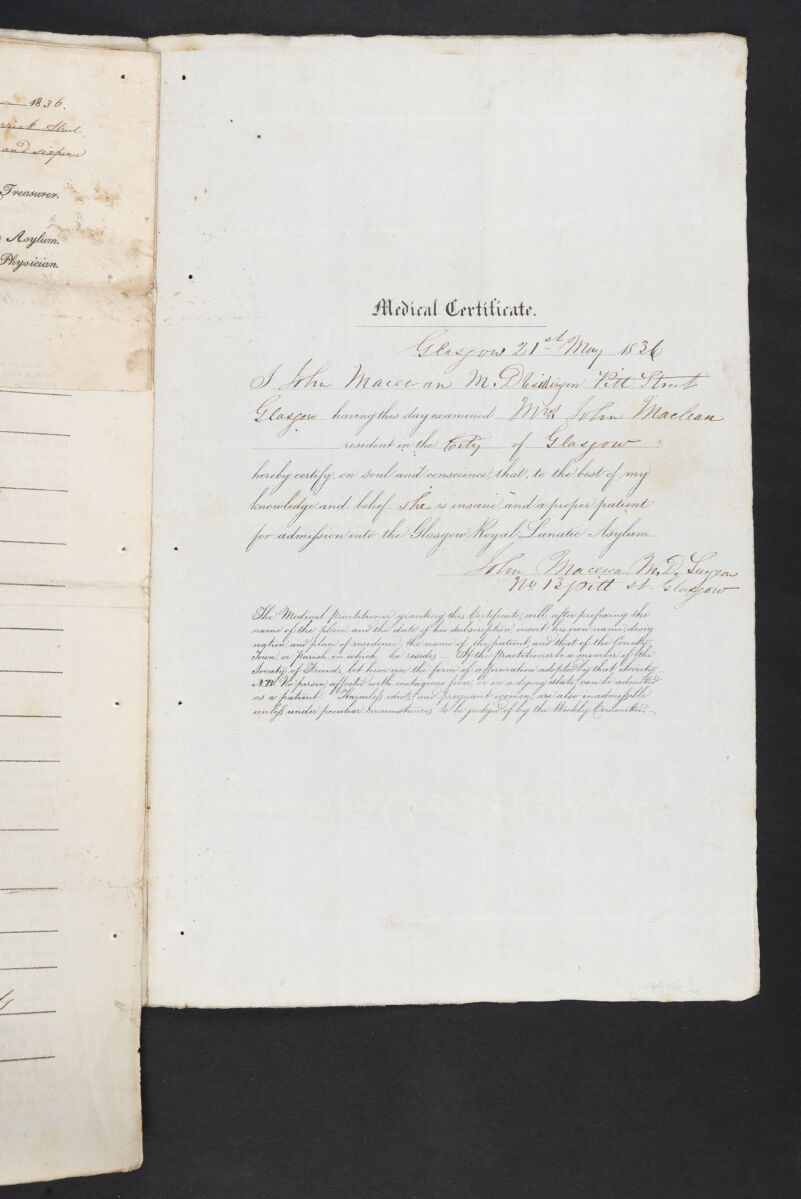 1836.
Street,
and sixpence
Treasurer.
Asylum.
Physician.
Medical Certificate.
Glasgow 21st May 1836
I John Macewan M.D residing in Pitt Street
Glasgow having this day examined Mrs John Maclean
resident in the City of Glasgow
hereby certify, on soul and conscience, that, to the best of my
knowledge and belief she is insane and a proper patient
for admission into the Glasgow Royal Lunatic Asylum
John Macewan M.D. Surgeon
No 13 pitt st. Glasgow
The Medical Practitioner granting this Certificate, will, after prefixing the
name of the place and the date of his subscription, insert his own name, desig
nation, and place of residence, the name of the patient, and that of the County,
Town, or Parish in which he resides — If the practitioner is a member of the
Society of Friends, let him use the form of affirmation adopted by that Society
N.B. No person affected with contagious fever, or in a dying state, can be admitted
as a patient. Harmless idiots, and pregnant women, are also inadmissible
unless under peculiar circumstances, to be judged of by the Weekly Committee.